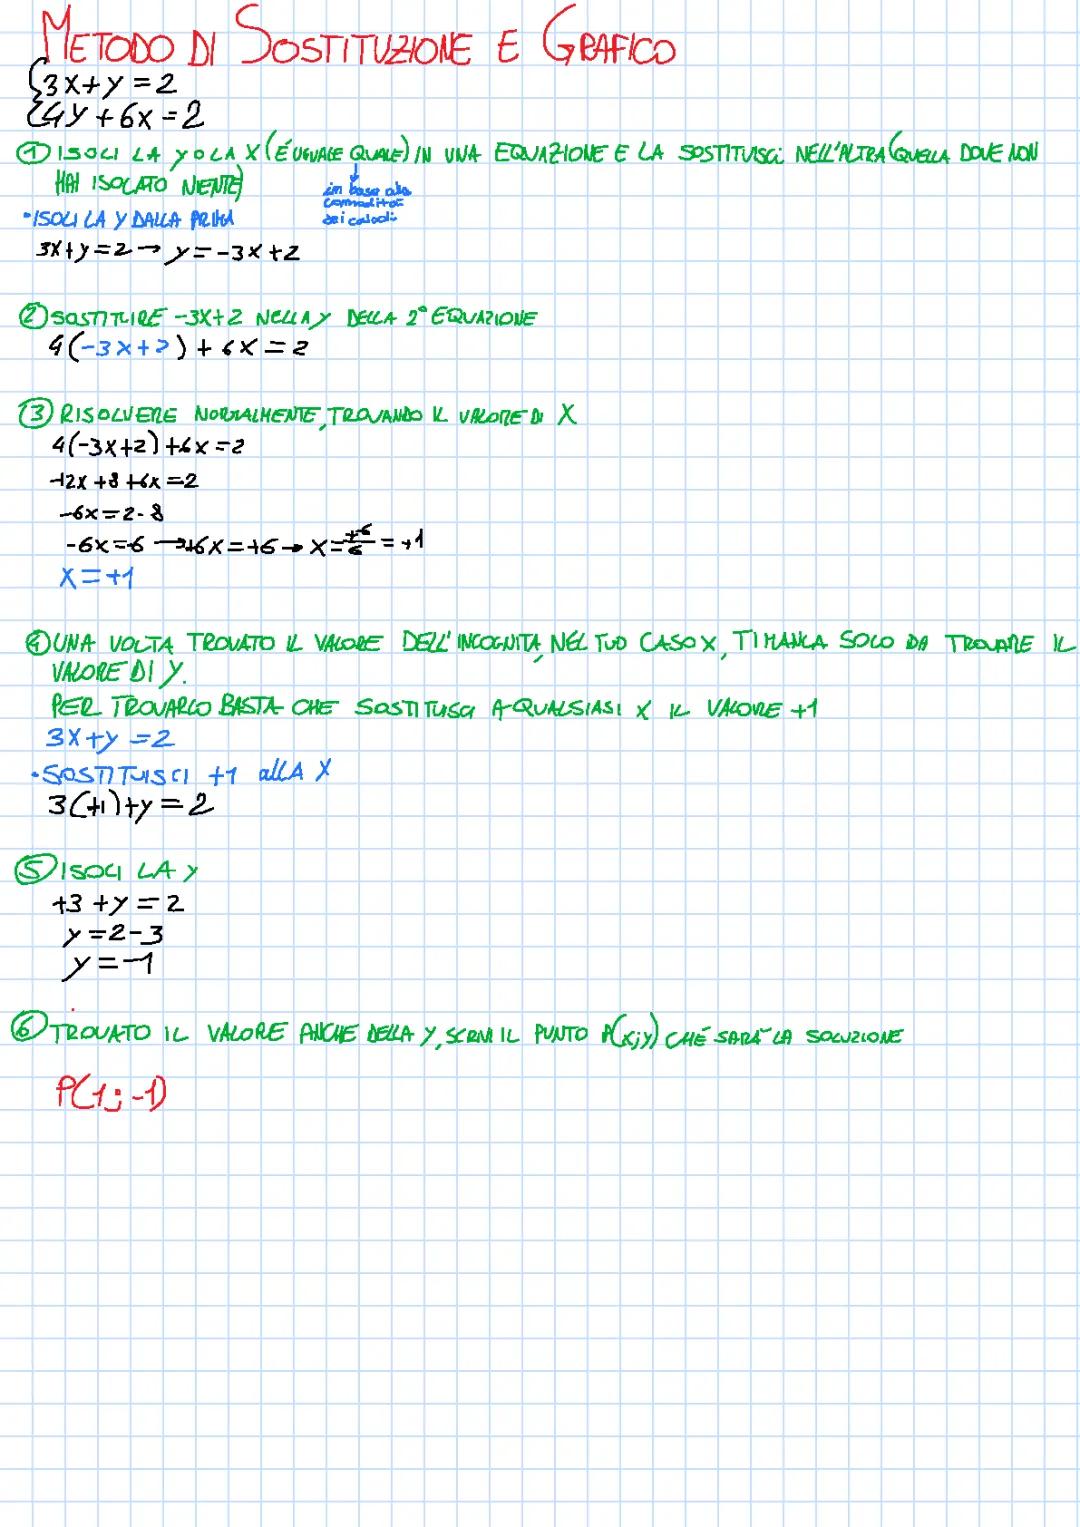 METODO DI SOSTITUZIONE E GRAFICO
{3x+y=2
{4y+6x=2
① ISOLI LA y O LA X (É UGUALE QUALE) IN UNA EQUAZIONE E LA SOSTITUISCI NELL'ALTRA (QUELLA DOVE NON
HAI ISOLATO NIENTE)
↓
in base alla
commodità
dei calcoli
•ISOLI LA Y DALLA PRIMA
3x+y=2→y=-3x+2
② SOSTITUIRE -3X+2 NELLA y DELLA 2° EQUAZIONE
4(-3x+2)+6x=2
③ RISOLVERE NORMALMENTE, TROVANDO IL VALORE DI X
4(-3x+2)+6x=2
-12x+8+6x=2
-6x=2-8
-6x=-6→+6x=+6→x=+6/6=+1
X=+1
④ UNA VOLTA TROVATO IL VALORE DELL'INCOGNITA, NEL TUO CASO X, TI MANCA SOLO DA TROVARE IL
VALORE DI Y.
PER TROVARLO BASTA CHE SOSTITUISCI A QUALSIASI X IL VALORE +1
3x+y=2
•SOSTITUISCI +1 allA X
3(+1)+y=2
⑤ ISOLI LA Y
+3+y=2
y=2-3
y=-1
⑥ TROVATO IL VALORE ANCHE DELLA Y, SCRIVI IL PUNTO P(x;y) CHE SARÁ LA SOLUZIONE
P(1;-1)